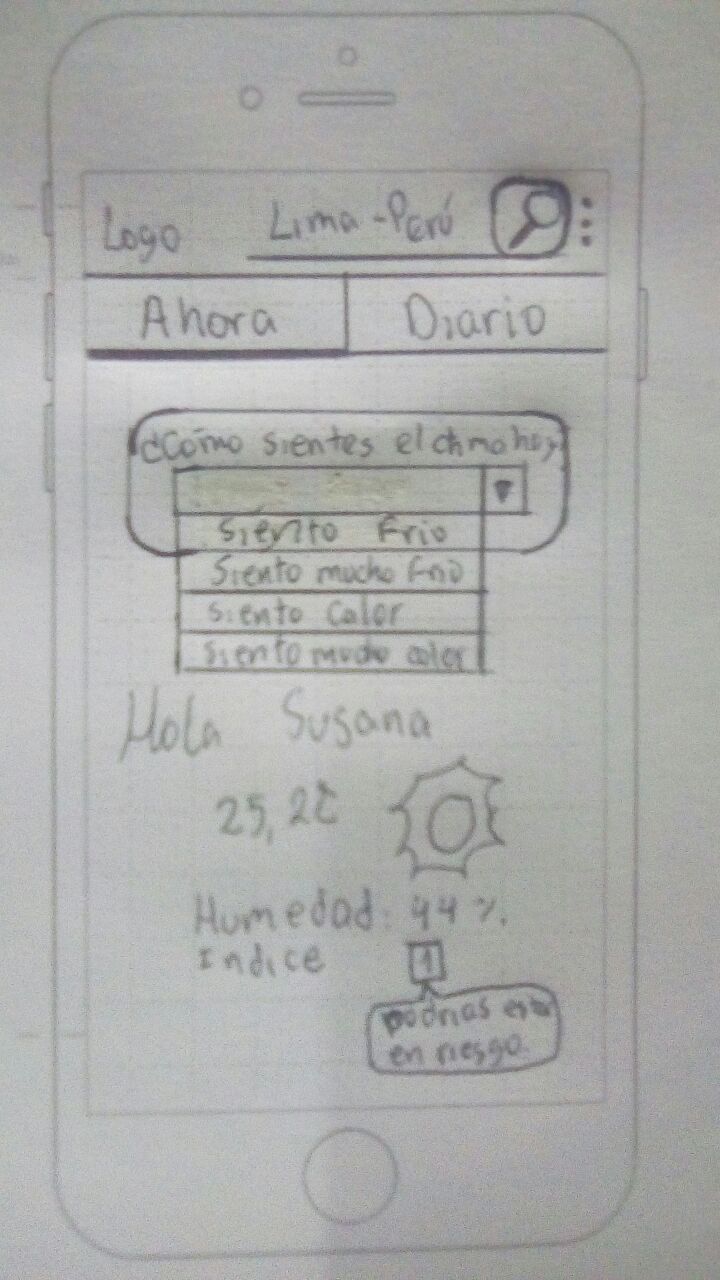 Logo Lima - Perú
Ahora Diario
¿Cómo sientes el clima hoy
Siento Frio
Siento mucho frio
siento Calor
siento mucho calor
Hola Susana
25,2°C
Humedad: 44 %.
Indice 1
podrias estar
en riesgo.